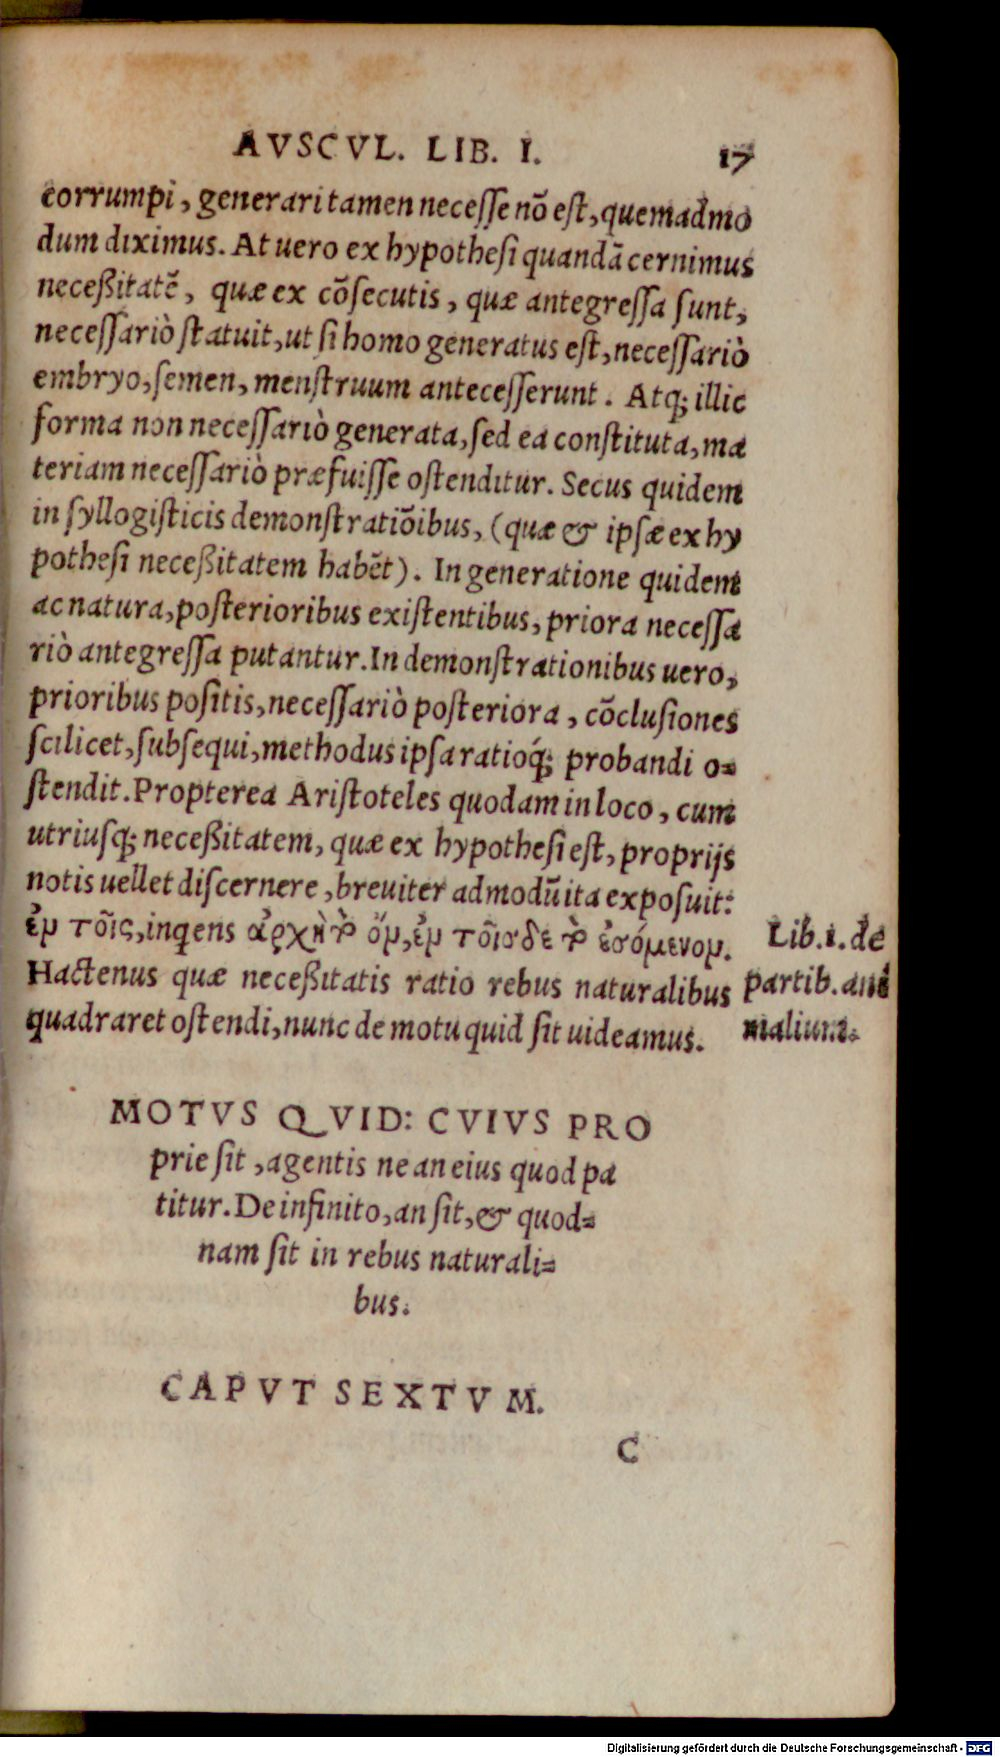 AVSCVL. LIB. I. 17
corrumpi, generari tamen necesse nō est, quemadmo
dum diximus. At uero ex hypothesi quandā cernimus
neceßitatē, quæ ex cōsecutis, quæ antegressa sunt,
necessariò statuit, ut si homo generatus est, necessariò
embryo, semen, menstruum antecesserunt. Atq; illic
forma non necessariò generata, sed ea constituta, ma
teriam necessariò præfuisse ostenditur. Secus quidem
in syllogisticis demonstratiōibus, (quæ & ipsæ ex hy
pothesi neceßitatem habēt). In generatione quidem
ac natura, posterioribus existentibus, priora necessa
riò antegressa putantur. In demonstrationibus uero,
prioribus positis, necessariò posteriora, cōclusiones
scilicet, subsequi, methodus ipsa ratioq́; probandi o=
stendit. Propterea Aristoteles quodam in loco, cum
utriusq; neceßitatem, quæ ex hypothesi est, proprijs
notis uellet discernere, breuiter admodū ita exposuit:
ἐν τοῖς, inqens ἀρχὴ τὸ ὄν, ἐν τοῖσδε τὸ ἐσόμενον.
Hactenus quæ neceßitatis ratio rebus naturalibus
quadraret ostendi, nunc de motu quid sit uideamus.
Lib. 1. de
partib. ani
malium.
MOTVS QVID: CVIVS PRO
prie sit, agentis ne an eius quod pa
titur. De infinito, an sit, & quod=
nam sit in rebus naturali=
bus.
CAPVT SEXTVM.
C
Digitalisierung gefördert durch die Deutsche Forschungsgemeinschaft - DFG